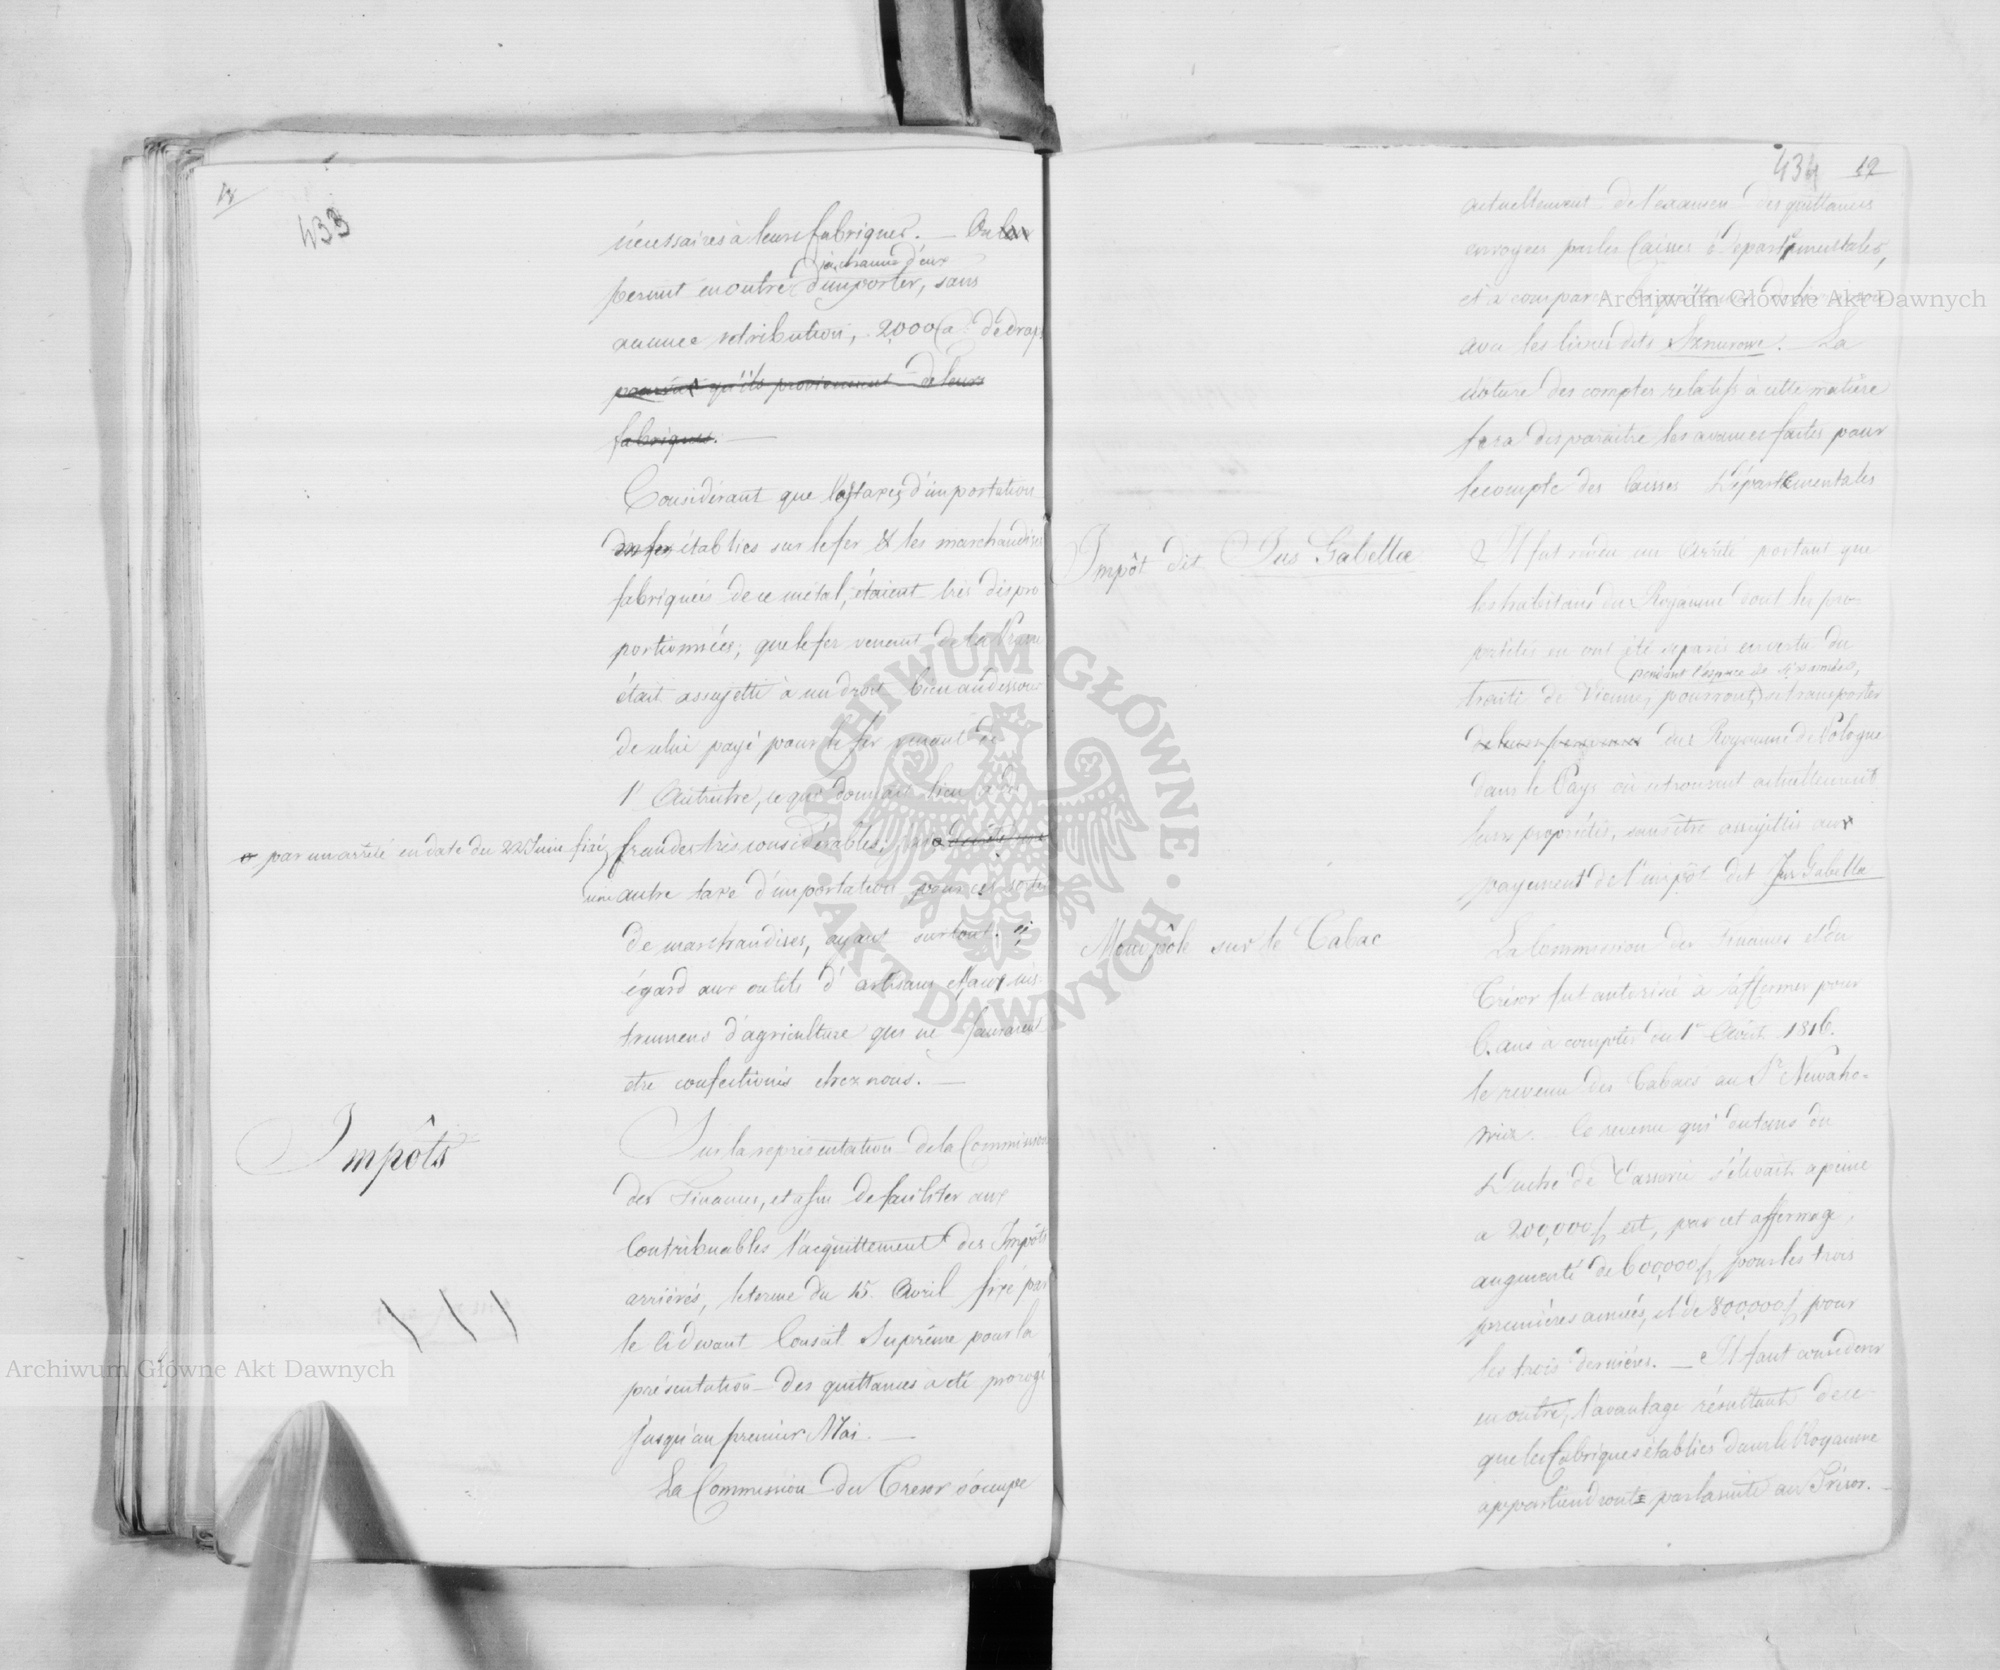 433
nécessaires à leurs fabriques. — On leur
à chacun d'eux
permit en outre d'importer, sans
aucune rétribution, 2,000 a. de draps
pourvu qu'ils proviennent de leurs
fabriques. —
Considérant que les taxes d'importation
du fer établies sur le fer & les marchandises
fabriquées de ce métal, étaient très dispro
portionnées; que le fer venant de la Prusse
était assujetti à un droit bien audessous
de celui payé pour le fer venant de
l'Autriche, ce qui donnait lieu à des
par un arrêté en date du 22 Juin fixé
fraudes très considérables,
une autre taxe d'importation pour ces sortes
de marchandises, ayant surtout
égard aux outils d'artisans et aux ins-
trumens d'agriculture qui ne sauraient
etre confectionés chez nous. —
Impôts
Sur la représentation de la Commission
des Finances, et afin de faciliter aux
Contribuables l'acquittement des Impôts
arriérés, le terme du 15. Avril fixé par
le cidevant Conseil Suprême pour la
présentation des quittances a été prorogé
jusqu'au premier Mai. —
La Commission du Tresor s'occupe
434 19
actuellement de l'examen des quittances
envoyées par les Caisses Départementales,
et à comparer
avec les livres dits Sznurowe. — La
clôture des comptes relatifs à cette matière
fera disparaître les avances faites pour
le compte des Caisses Départementales
Impôt dit Jus Gabellæ
Il fut rendu un Arrêté portant que
les habitans du Royaume dont les pro-
priétés en ont été séparées en vertu du
pendant l'espace de six années,
traité de Vienne, pourront se transporter
de leurs personnes du Royaume de Pologne
dans le Pays où se trouvent actuellement
leurs propriétés, sans être assujettis aux
payement de l'impôt dit Jus Gabellæ
Monopôle sur le Tabac
La Commission des Finances et du
Trésor fut autorisé à affermer pour
6. ans à compter du 1r Août 1816.
le revenu des Tabacs au Sr. Newacho-
wicz. Ce revenu qui du tems du
Duché de Varsovie s'élevait à peine
a 200,000 f. est, par cet affermage,
augmenté de 600,000 f. pour les trois
premières années, et de 800,000 f. pour
les trois dernières. — Il faut considerer
en outre, l'avantage résultant de ce
que les Fabriques établies dans le Royaume
appartiendront par la suite au Trésor. —
Archiwum Główne Akt Dawnych
Archiwum Główne Akt Dawnych
ARCHIWUM GŁÓWNE · AKT DAWNYCH ·